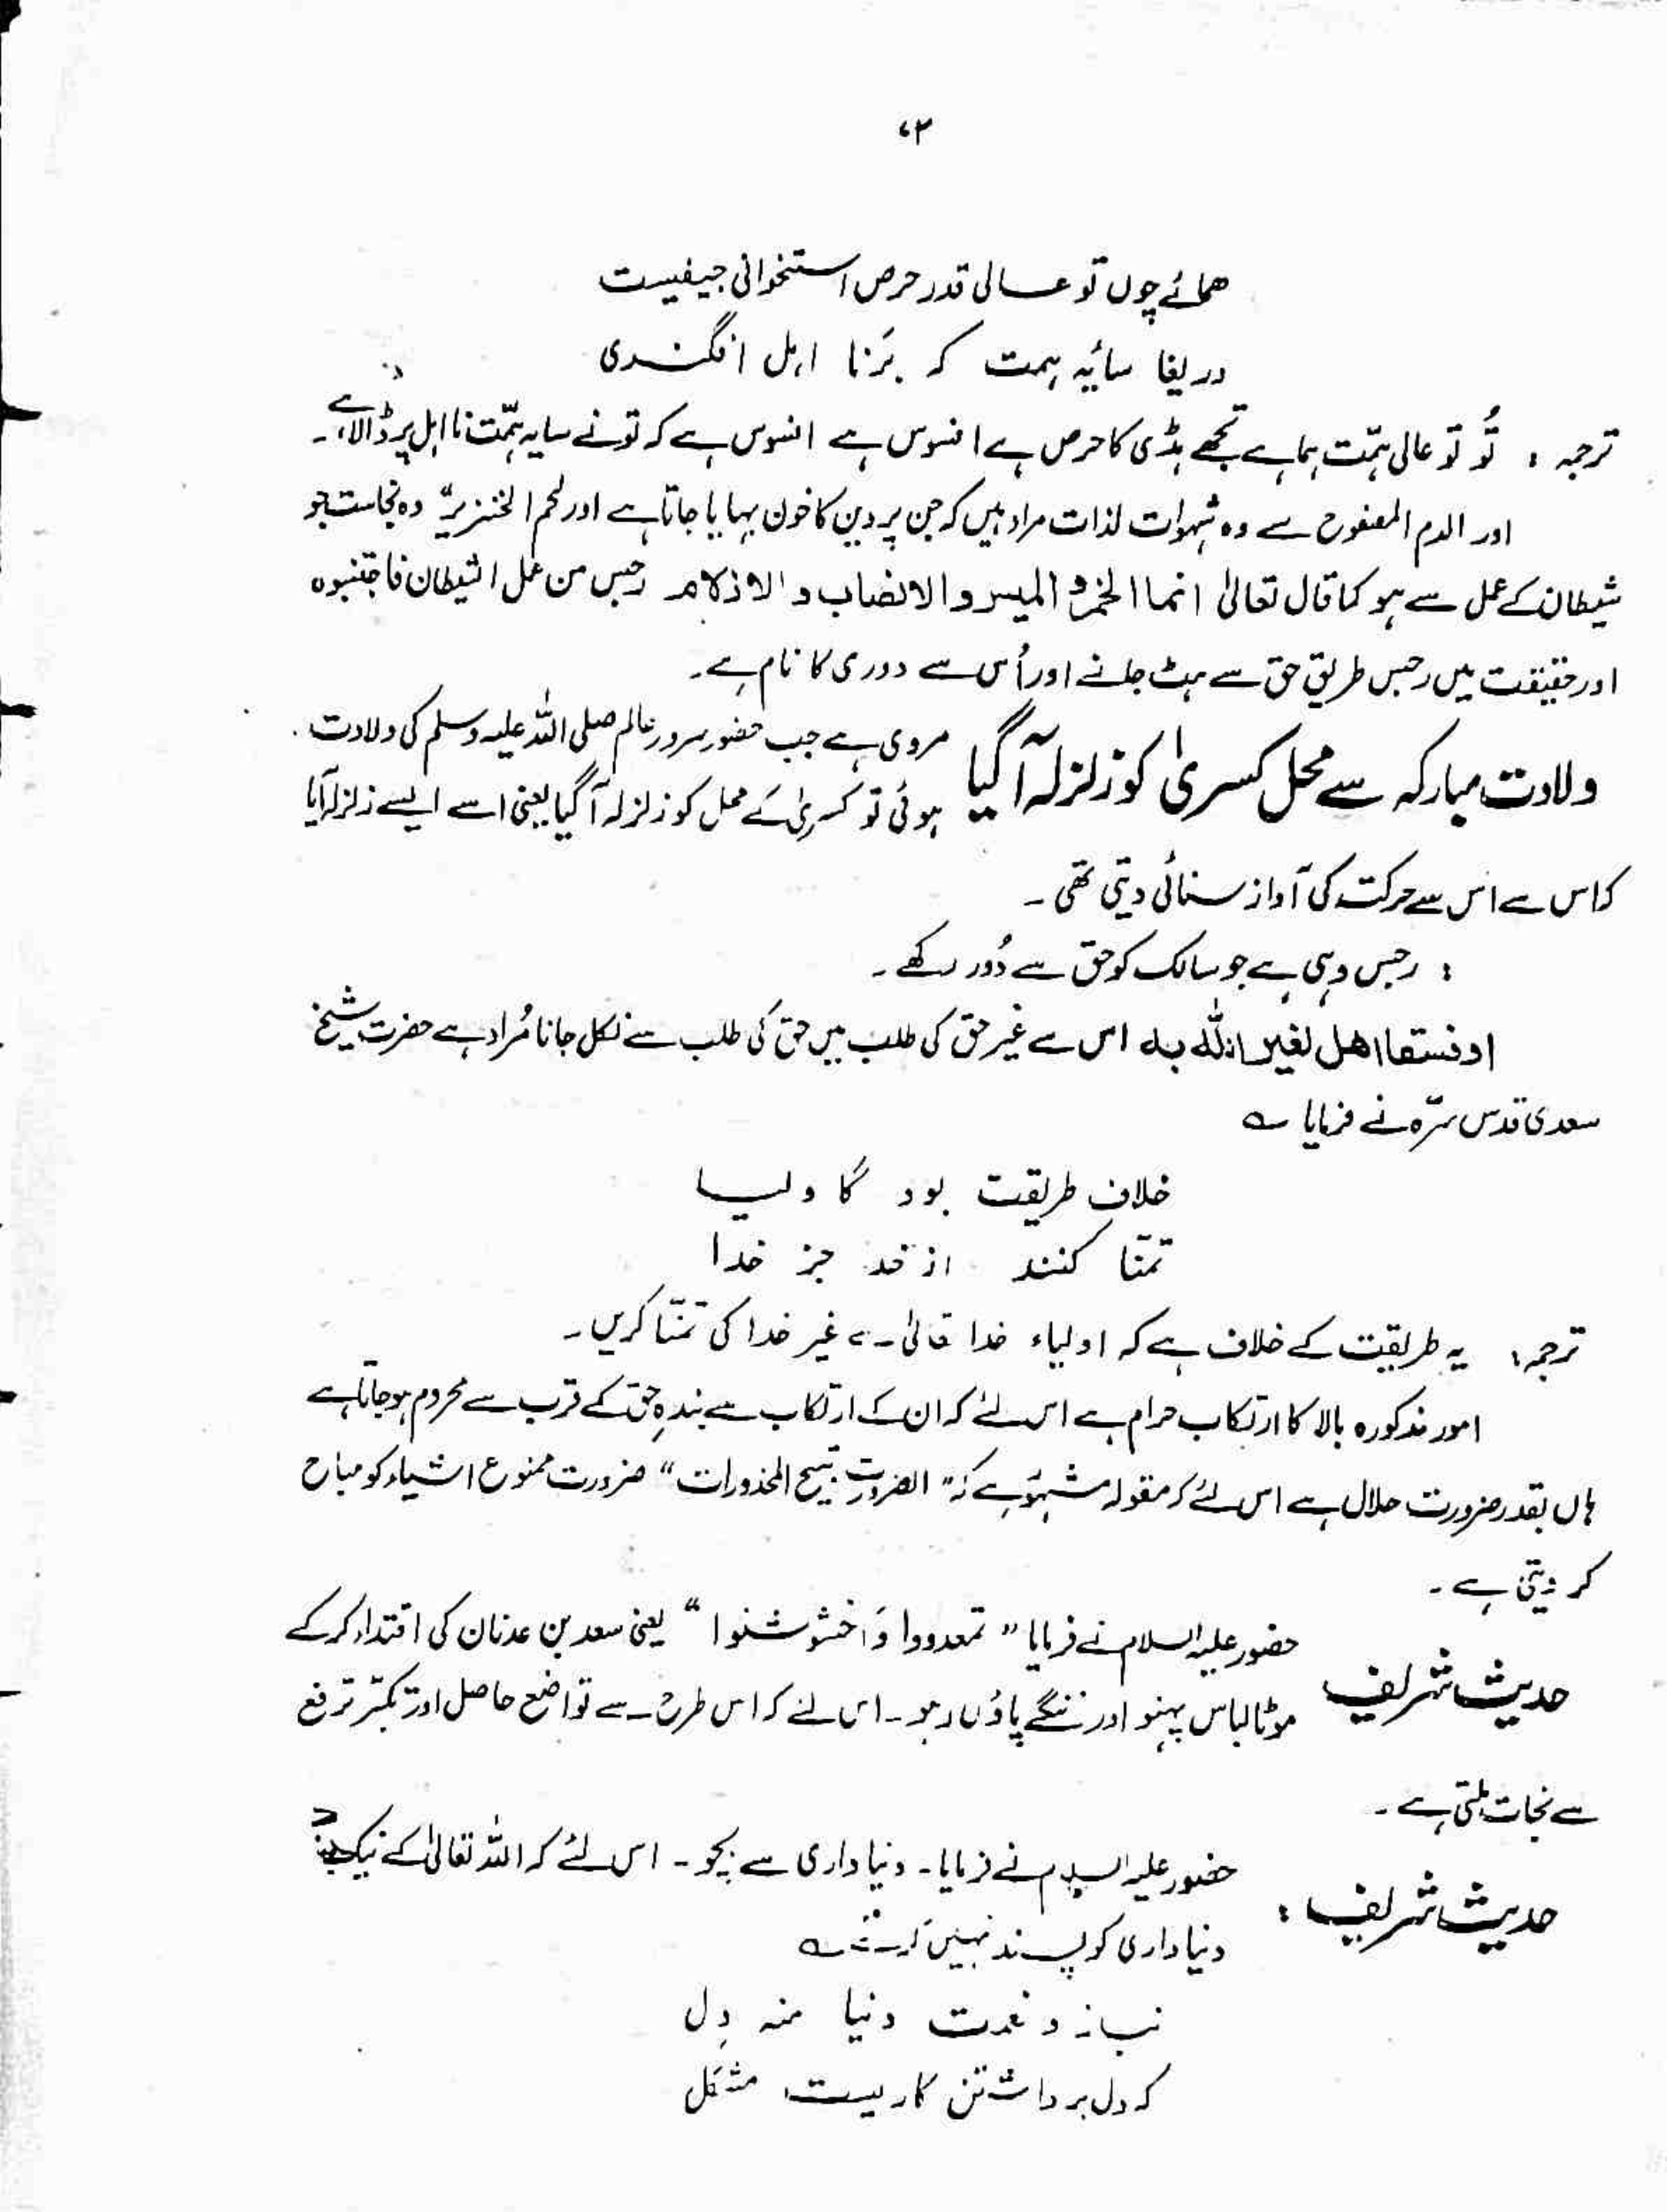 ۷۲
همائے چوں تو عالی قدر حرص استخوانی جیفیست
دریغا سائیہ ہمت کہ برنا اہل افگندی
ترجمہ : تُو تو عالی ہمّت ہما ہے تجھے ہڈی کا حرص ہے افسوس ہے افسوس ہے کہ تو نے سایہ ہمّت نا اہل پر ڈالا ہے۔
اور الدم المعفوح سے وہ شہوات لذات مراد ہیں کہ جن پر دین کا خون بہایا جاتا ہے اور لحم الخنزیر وہ نجاست جو
شیطان کے عمل سے ہو کما قال تعالیٰ انما الخمر و المیسر و الانصاب و الازلام رجس من عمل الشیطان فاجتنبوہ
اور حقیقت میں رجس طریق حق سے ہٹ جانے اور اُس سے دوری کا نام ہے۔
ولادت مبارکہ سے محل کسریٰ کو زلزلہ آگیا مروی ہے جب حضور سرور عالم صلی اللہ علیہ وسلم کی ولادت
ہوئی تو کسریٰ کے محل کو زلزلہ آگیا یعنی اسے ایسے زلزلہ آیا
کہ اس سے اس سے حرکت کی آواز سنائی دیتی تھی۔
: رجس وہی ہے جو سالک کو حق سے دُور رکھے۔
او فسقا اهل لغیر الله به اس سے غیر حق کی طلب میں حق کی طلب سے نکل جانا مُراد ہے حضرت شیخ
سعدی قدس سرّہ نے فرمایا ؎
خلاف طریقت بود کا ولیا
تمنّا کنند از خدا جز خدا
ترجمہ : یہ طریقت کے خلاف ہے کہ اولیاء خدا تعالیٰ سے غیر خدا کی تمنّا کریں۔
امور مذکورہ بالا کا ارتکاب حرام ہے اس لئے کہ ان کے ارتکاب سے بندہ حق کے قرب سے محروم ہو جاتا ہے
ہاں بقدر ضرورت حلال ہے اس لئے کہ مقولہ مشہور ہے کہ " الضرورت تبیح المحذورات " ضرورت ممنوع اشیاء کو مباح
کر دیتی ہے۔
حدیث شریف حضور علیہ السلام نے فرمایا " تمعددوا وَاخشوشنوا " یعنی سعد بن عدنان کی اقتداء کر کے
موٹا لباس پہنو اور ننگے پاؤں رہو۔ اس لئے کہ اس طرح سے تواضع حاصل اور تکبّر ترفع
سے نجات ملتی ہے۔
حدیث شریف : حضور علیہ السلام نے فرمایا۔ دنیا داری سے بچو۔ اس لئے کہ اللہ تعالیٰ کے نیک بندے
دنیا داری کو پسند نہیں کرتے ؎
نباز و نعمت دنیا منہ دِل
کہ دل برداشتن کاریست مشکل